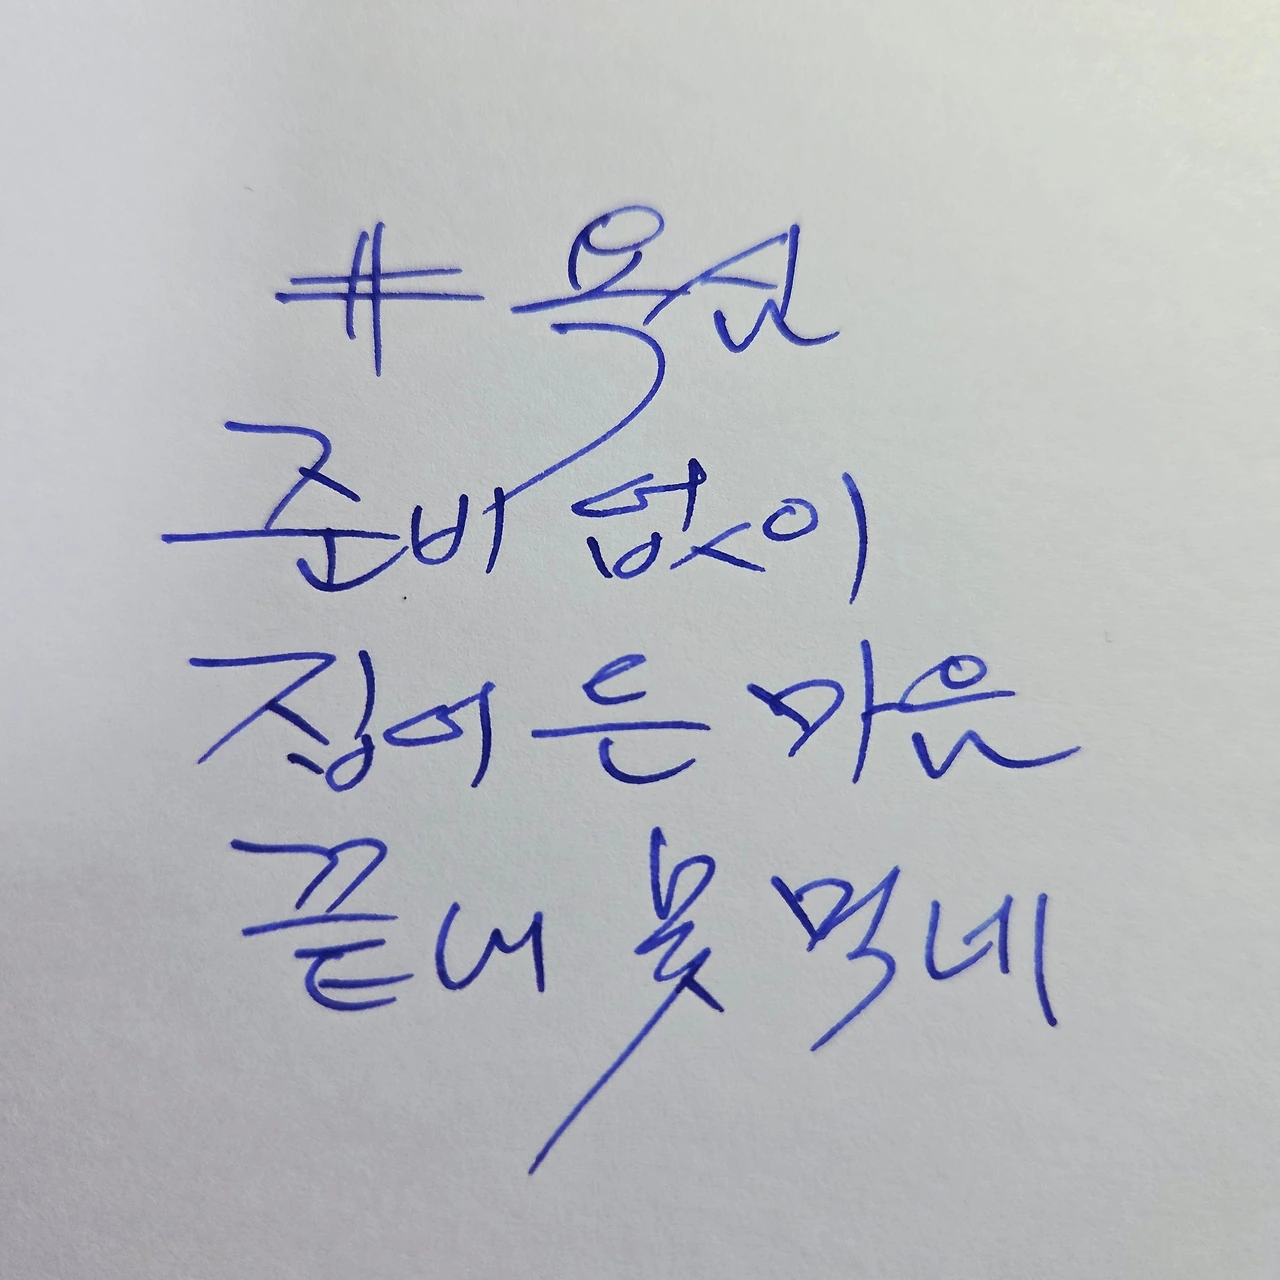 # 욕심
준비 없이
집어 든 마음
끝내 못 먹네